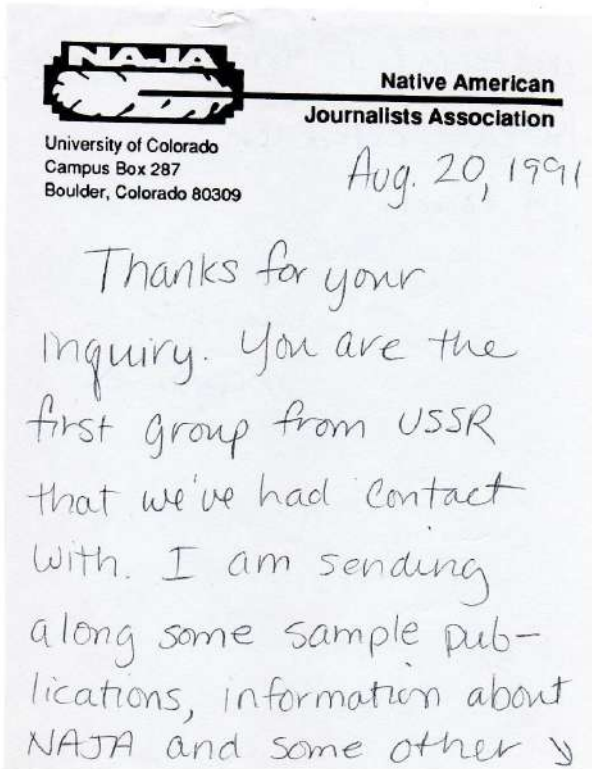 NAJA
Native American
Journalists Association
University of Colorado
Campus Box 287
Boulder, Colorado 80309
Aug. 20, 1991
Thanks for your
inquiry. You are the
first group from USSR
that we've had contact
with. I am sending
along some sample pub-
lications, information about
NAJA and some other